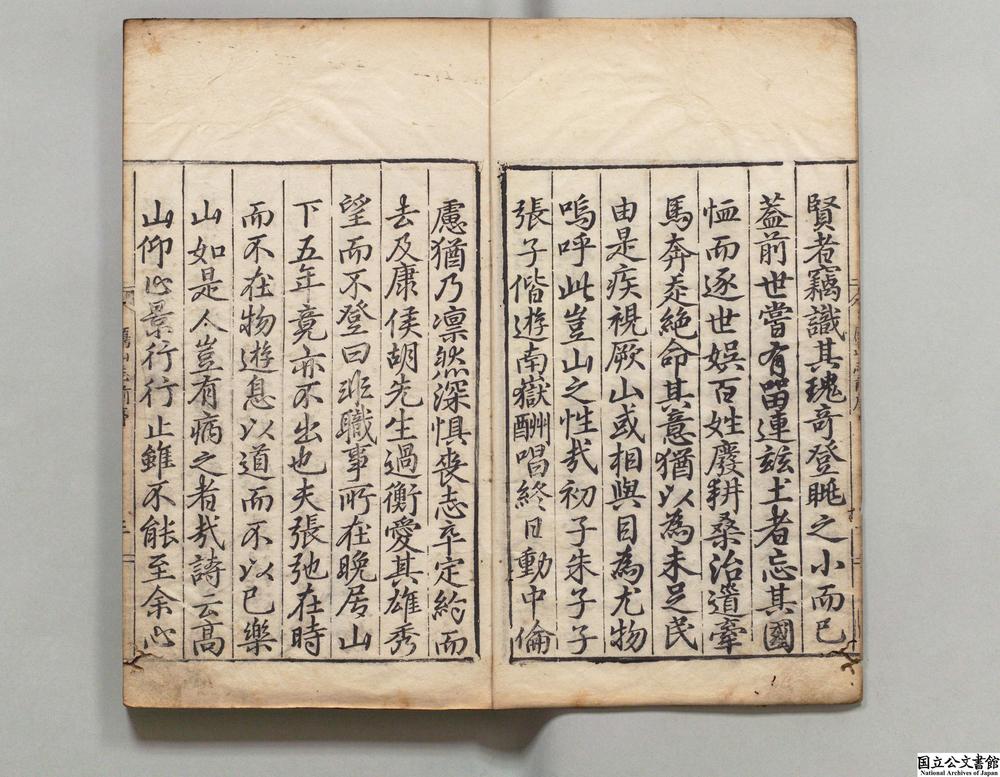 賢者竊識其瑰奇登眺之小而已
葢前世嘗有畱連玆土者忘其國
恤而逐世娛百姓廢耕桑治道牽
馬奔走絶命其意猶以為未足民
由是疾視厥山或相與目為尤物
嗚呼此豈山之性㢤初子朱子子
張子偕遊南嶽酬唱終日動中倫
慮猶乃凛然深惧喪志卒定約而
去及康侯胡先生過衡愛其雄秀
望而不登曰非職事所在晚居山
下五年竟亦不出也夫張弛在時
而不在物遊息以道而不以已樂
山如是人豈有病之者㢤詩云高
山仰止景行行止雖不能至余心
国立公文書館
National Archives of Japan